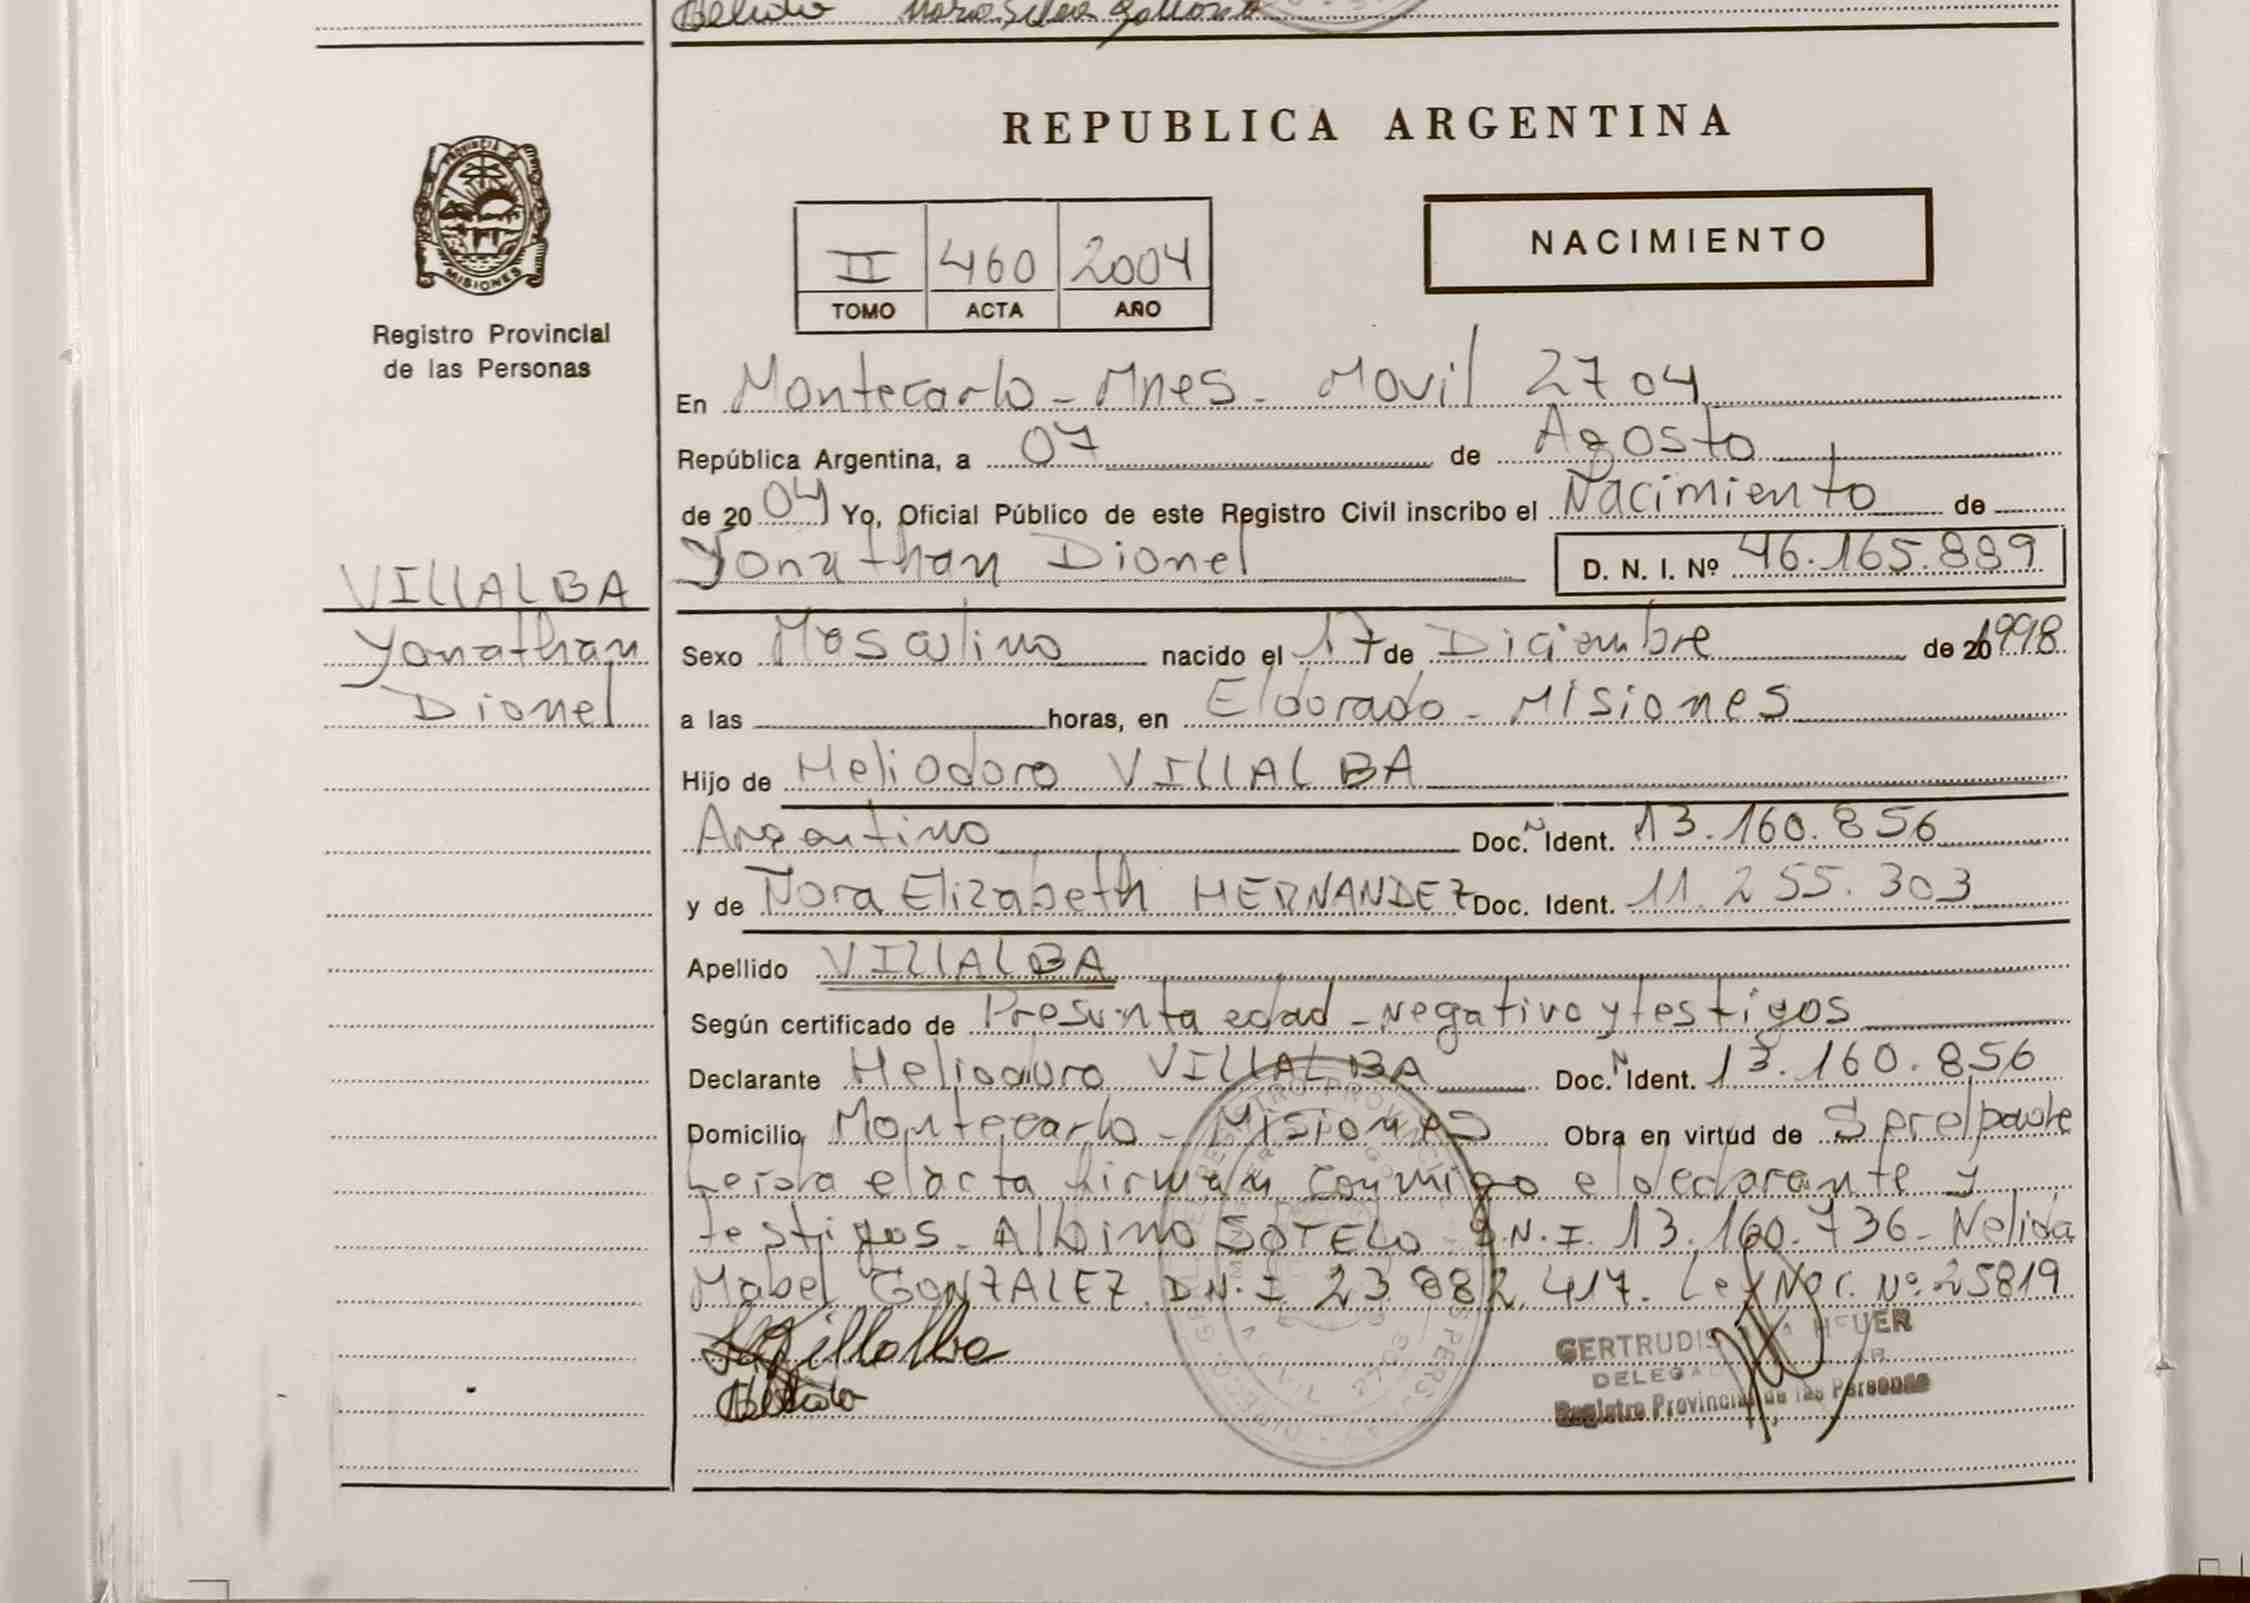 REPUBLICA ARGENTINA
PROVINCIA DE
MISIONES
Registro Provincial
de las Personas
II 460 2004
TOMO ACTA AÑO
NACIMIENTO
En Montecarlo - Mnes - Movil 2704
República Argentina, a 07 de Agosto
de 2004 Yo, Oficial Público de este Registro Civil inscribo el Nacimiento de
Yonathan Dionel D. N. I. Nº 46.165.889
VILLALBA
Yonathan
Dionel
Sexo Masculino nacido el 17 de Diciembre de 20 1998
a las horas, en Eldorado - Misiones
Hijo de Heliodoro VILLALBA
Argentino Doc. N Ident. 13.160.856
y de Nora Elizabeth HERNANDEZ Doc. Ident. 11.255.303
Apellido VILLALBA
Según certificado de Presunta edad - Negativo y testigos
Declarante Heliodoro VILLALBA Doc. N Ident. 13.160.856
Domicilio Montecarlo - Misiones Obra en virtud de Ser el padre
Leída el acta firman conmigo el declarante y
testigos - Albino SOTELO - D.N.I. 13.160.736 - Nelida
Mabel GONZALEZ D.N.I 23.882.417. Ley Nac. Nº 25819
Villalba
GERTRUDIS HEUER
Registro Provincial de las Personas